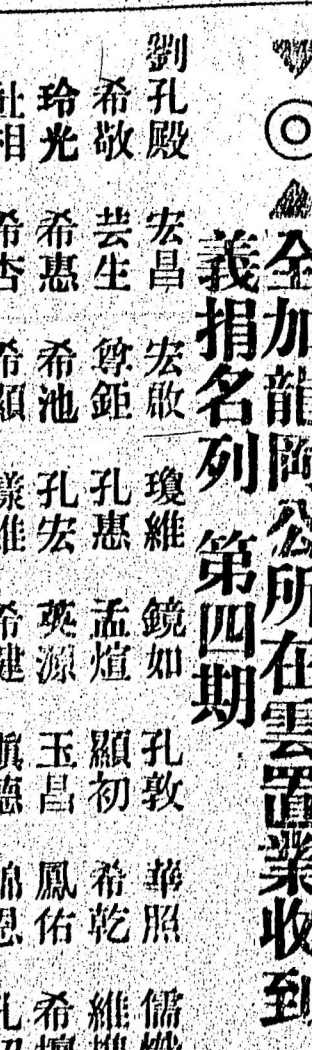 全加龍岡公所在雲置業收到
義捐名列 第四期
劉孔殿 宏昌 宏啟 瓊維 鏡如 孔敦 華照 儒
希敬 芸生 尊鉅 孔惠 孟煊 顯初 希乾 維
玲光 希惠 希池 孔宏 英源 玉昌 鳳佑 希